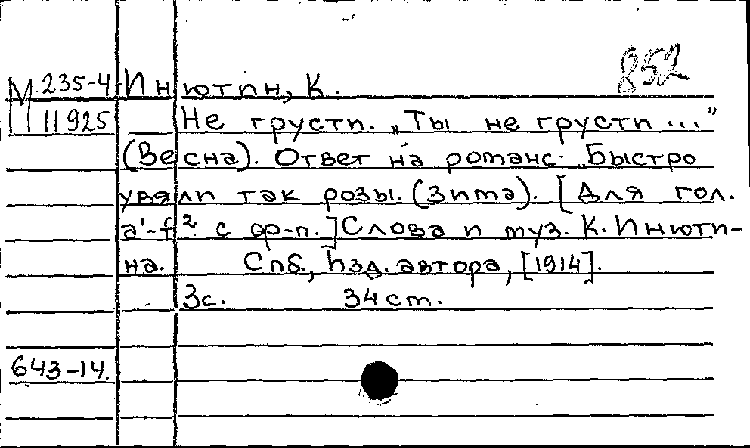 852
М 235-4 Инютин, К.
11925 Не грусти. „Ты не грусти ..."
(Весна). Ответ на романс Быстро
увяли так розы. (Зима). [Для гол.
a'-f² с ф-п.] Слова и муз. К. Инюти-
на. Спб., Изд. автора, [1914].
3с. 34 ст.
643-14.